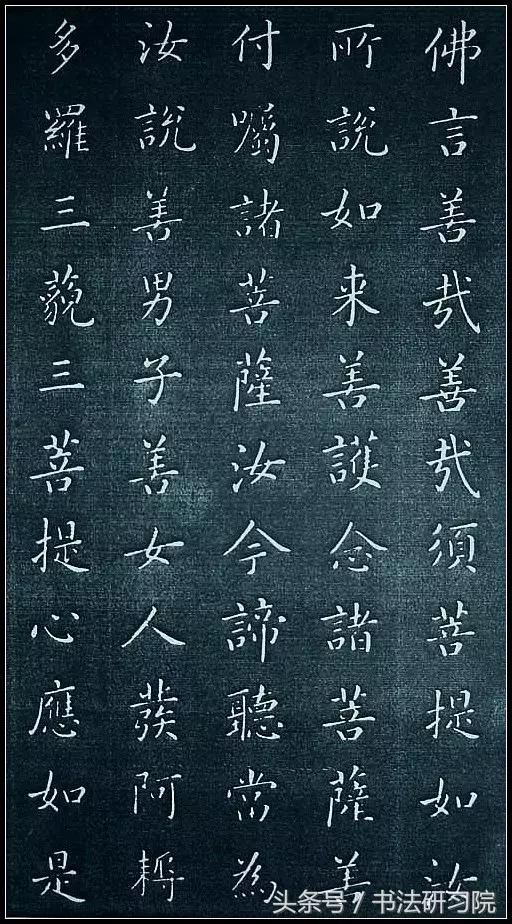 佛言善哉善哉須菩提如汝
所說如来善護念諸菩薩善
付囑諸菩薩汝今諦聽當為
汝說善男子善女人發阿耨
多羅三藐三菩提心應如是
头条号 / 书法研习院